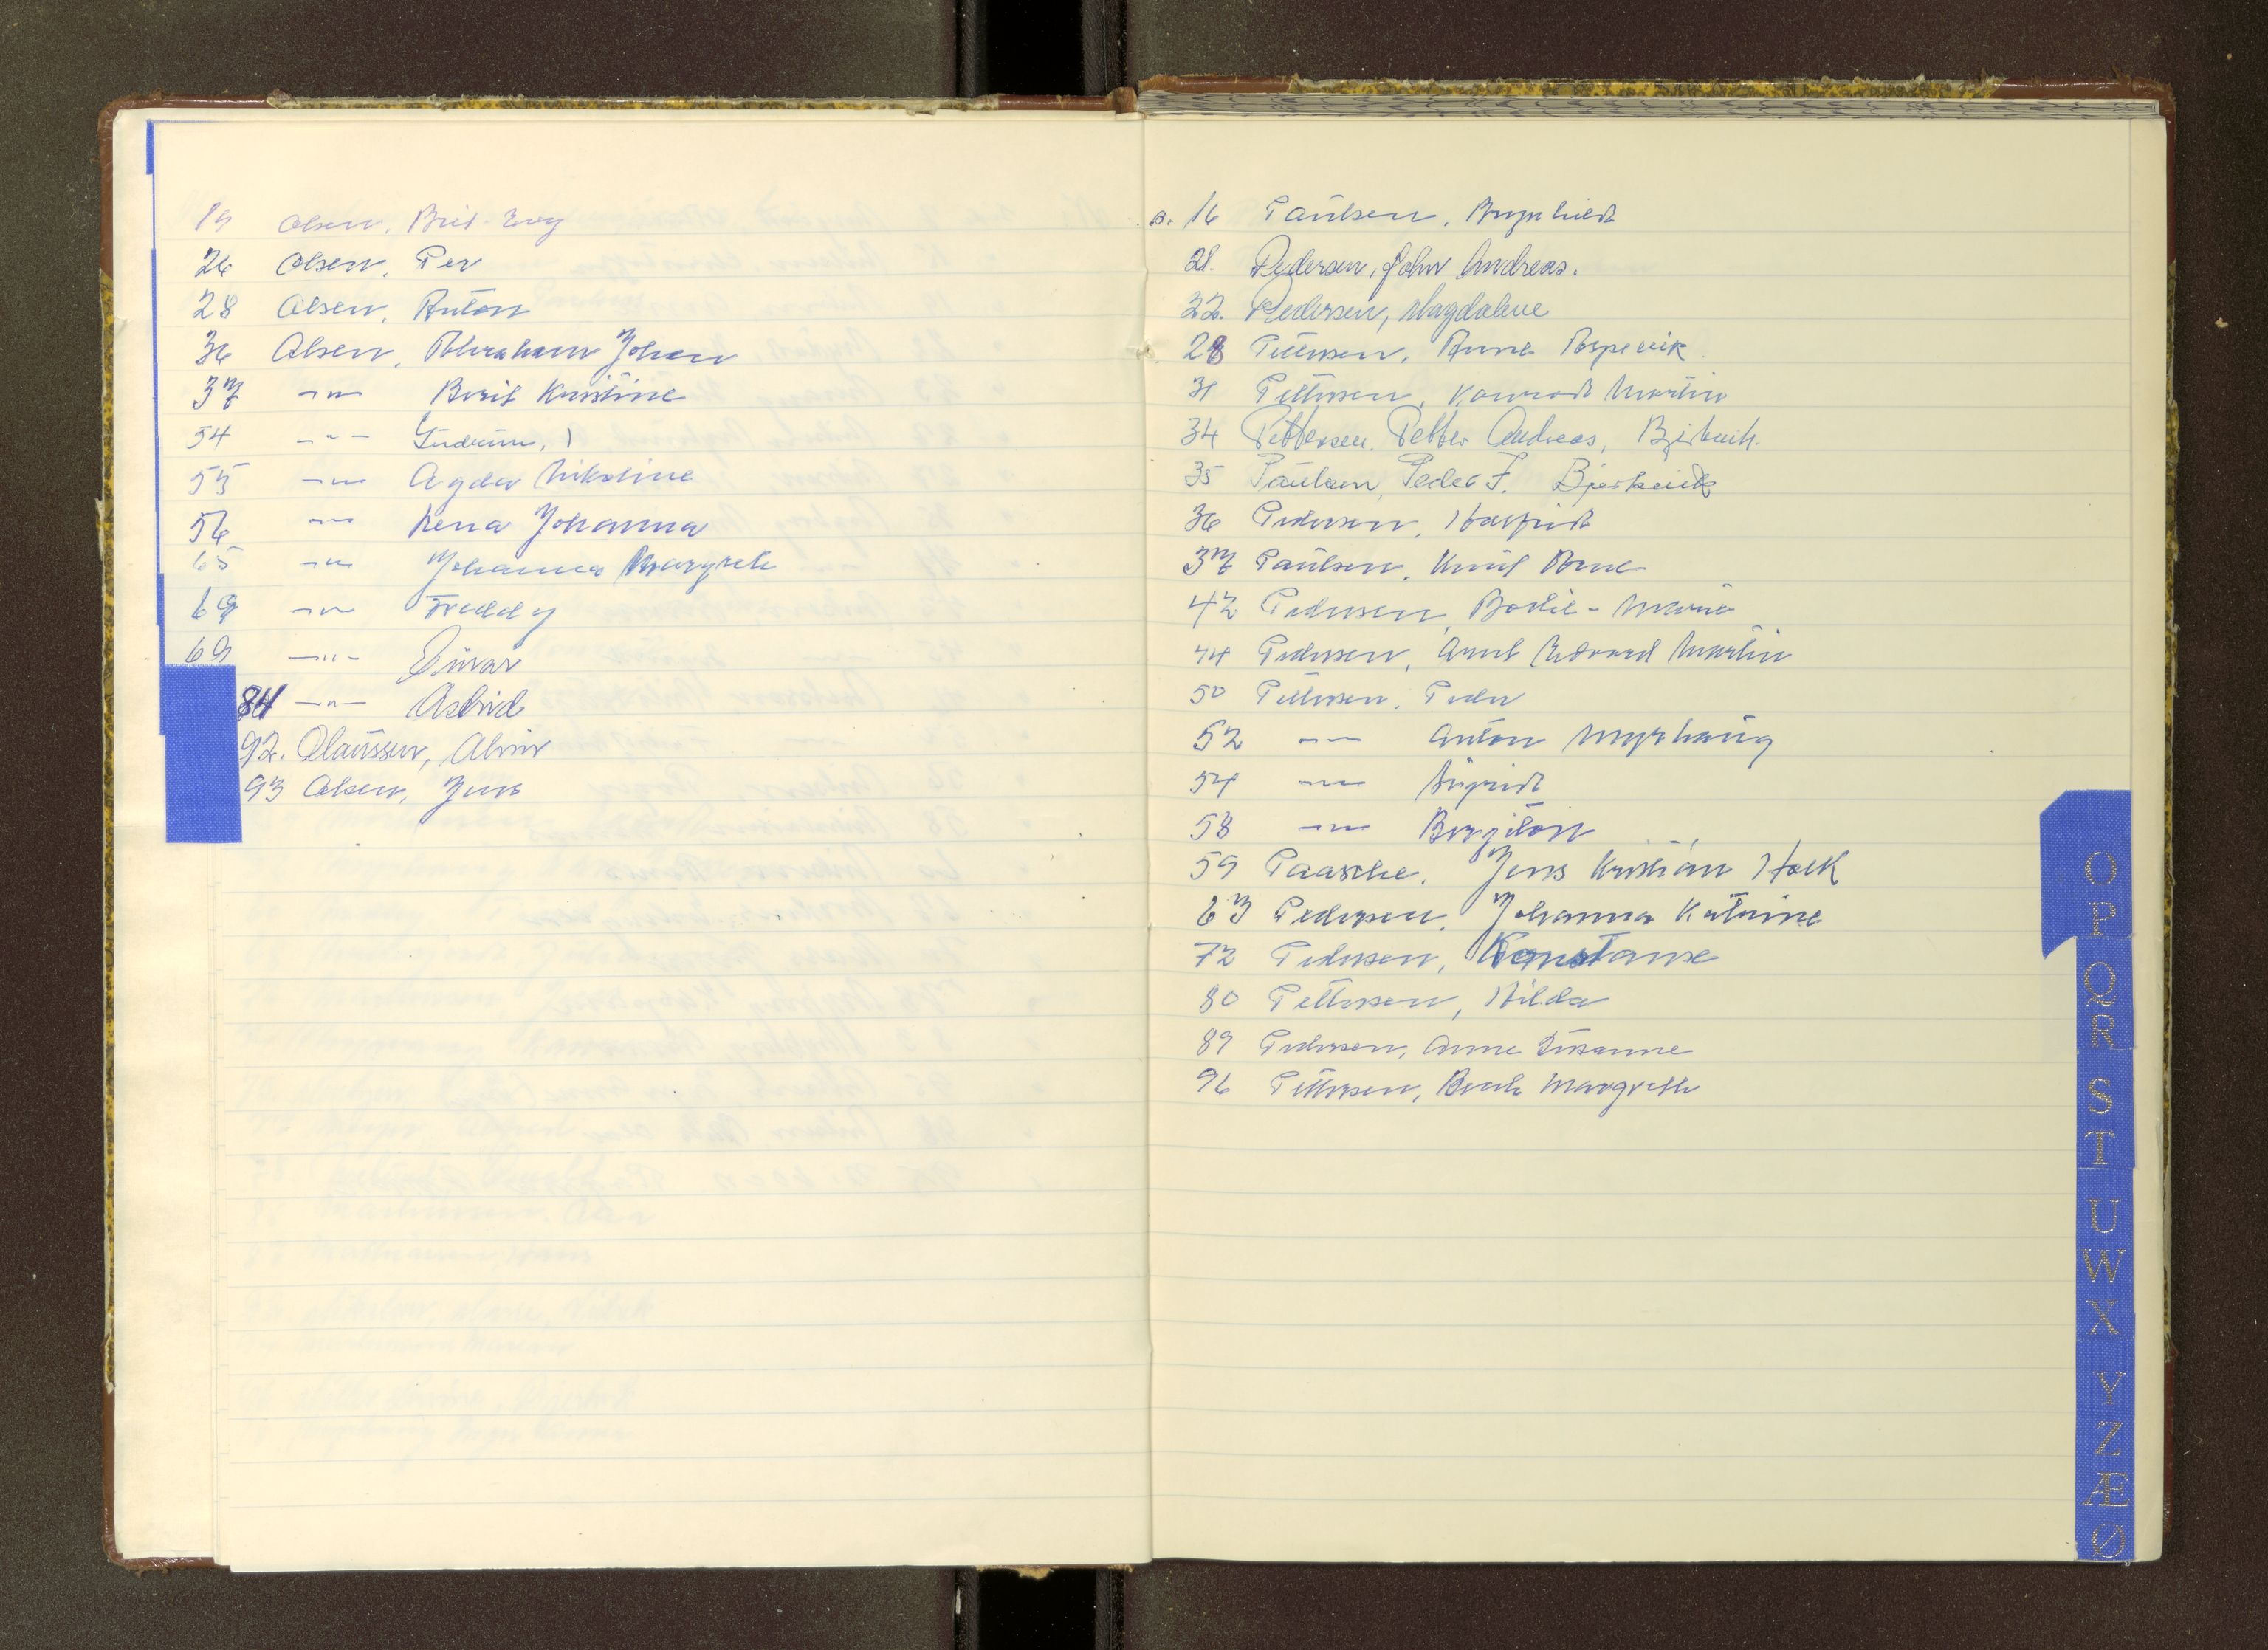 19 Olsen, Brit Evy
26 Olsen, Per
28 Olsen, Anton
36 Olsen, Abraham Johan
37 -"- Berit Kristine
54 -"- Gudrun, I
55 -"- Agda Nikoline
56 -"- Lena Johanna
65 -"- Johanna Margreth
69 -"- Freddy
69 -"- Einar
84 -"- Astrid
92. Olaussen, Alvin
93 Olsen, Jens
s. 16 Paulsen, Brynhild
21. Pedersen, John Andreas.
22. Pedersen, Magdalene
28 Pettersen, Anna
31 Pettersen, Konrad Martin
34 Pettersen, Petter Andreas, Bjerkvik.
35 Paulsen, Peder F. Bjerkvik
36 Pedersen, Harfrid
37 Paulsen, Knut Arne
42 Pedersen, Bodil-Marie
44 Pedersen, Arnt Edvard Martin
50 Pettersen, Peder
52 -"- Anton Myrhaug
54 -"- Sigrid
58 -"- Bergiton
59 Paasche, Jens Kristian Holk
63 Pedersen, Johanna Katrine
72 Pedersen, Konstanse
80 Pettersen, Hilda
89 Pedersen, Anne Susanne
96 Pettersen, Berit Margreth
O
P
Q
R
S
T
U
W
X
Y
Z
Æ
Ø